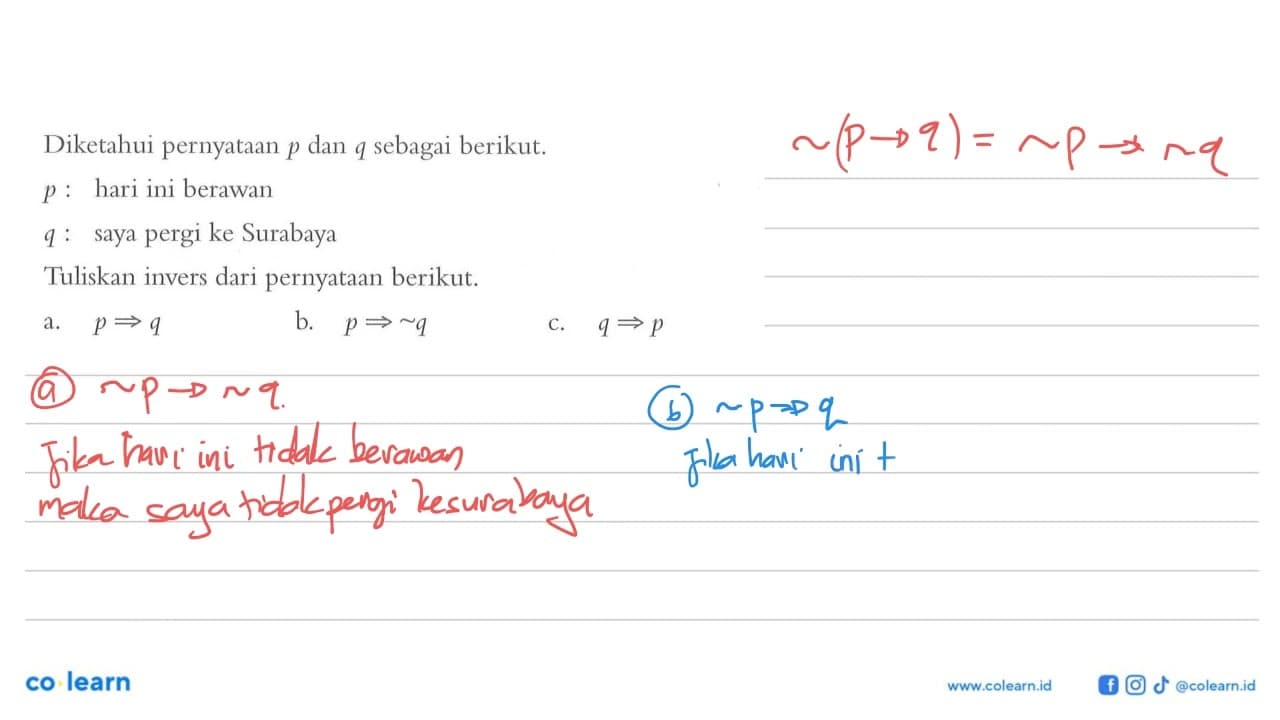 Diketahui pernyataan p dan q sebagai berikut.
p : hari ini berawan
q : saya pergi ke Surabaya
Tuliskan invers dari pernyataan berikut.
a. p ⇒ q b. p ⇒ ~q c. q ⇒ p
~(p → q) = ~p → ~q
a ~p → ~q.
Jika hari ini tidak berawan
maka saya tidak pergi kesurabaya
b ~p ⇒ q
Jika hari ini t
co learn
www.colearn.id @colearn.id